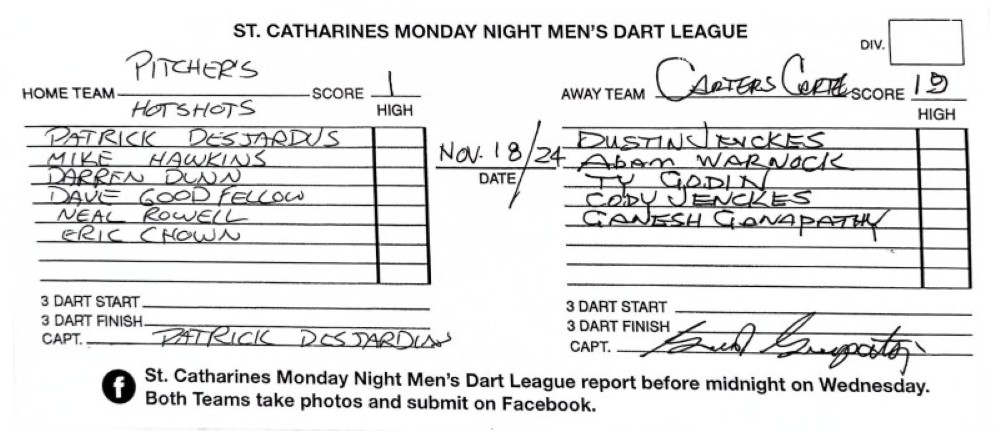 ST. CATHARINES MONDAY NIGHT MEN'S DART LEAGUE
DIV.
HOME TEAM PITCHER'S SCORE 1
HOTSHOTS
HIGH
PATRICK DESJARDUS
MIKE HAWKINS
DARREN DUNN
DAVE GOODFELLOW
NEAL ROWELL
ERIC CHOWN
3 DART START
3 DART FINISH
CAPT. PATRICK DESJARDINS
NOV. 18/24
DATE
AWAY TEAM CARTERS SCORE 19
HIGH
DUSTIN JENCKES
ADAM WARNOCK
TY GODIN
CODY JENCKES
GANESH GANAPATHY
3 DART START
3 DART FINISH
CAPT.
f St. Catharines Monday Night Men's Dart League report before midnight on Wednesday.
Both Teams take photos and submit on Facebook.